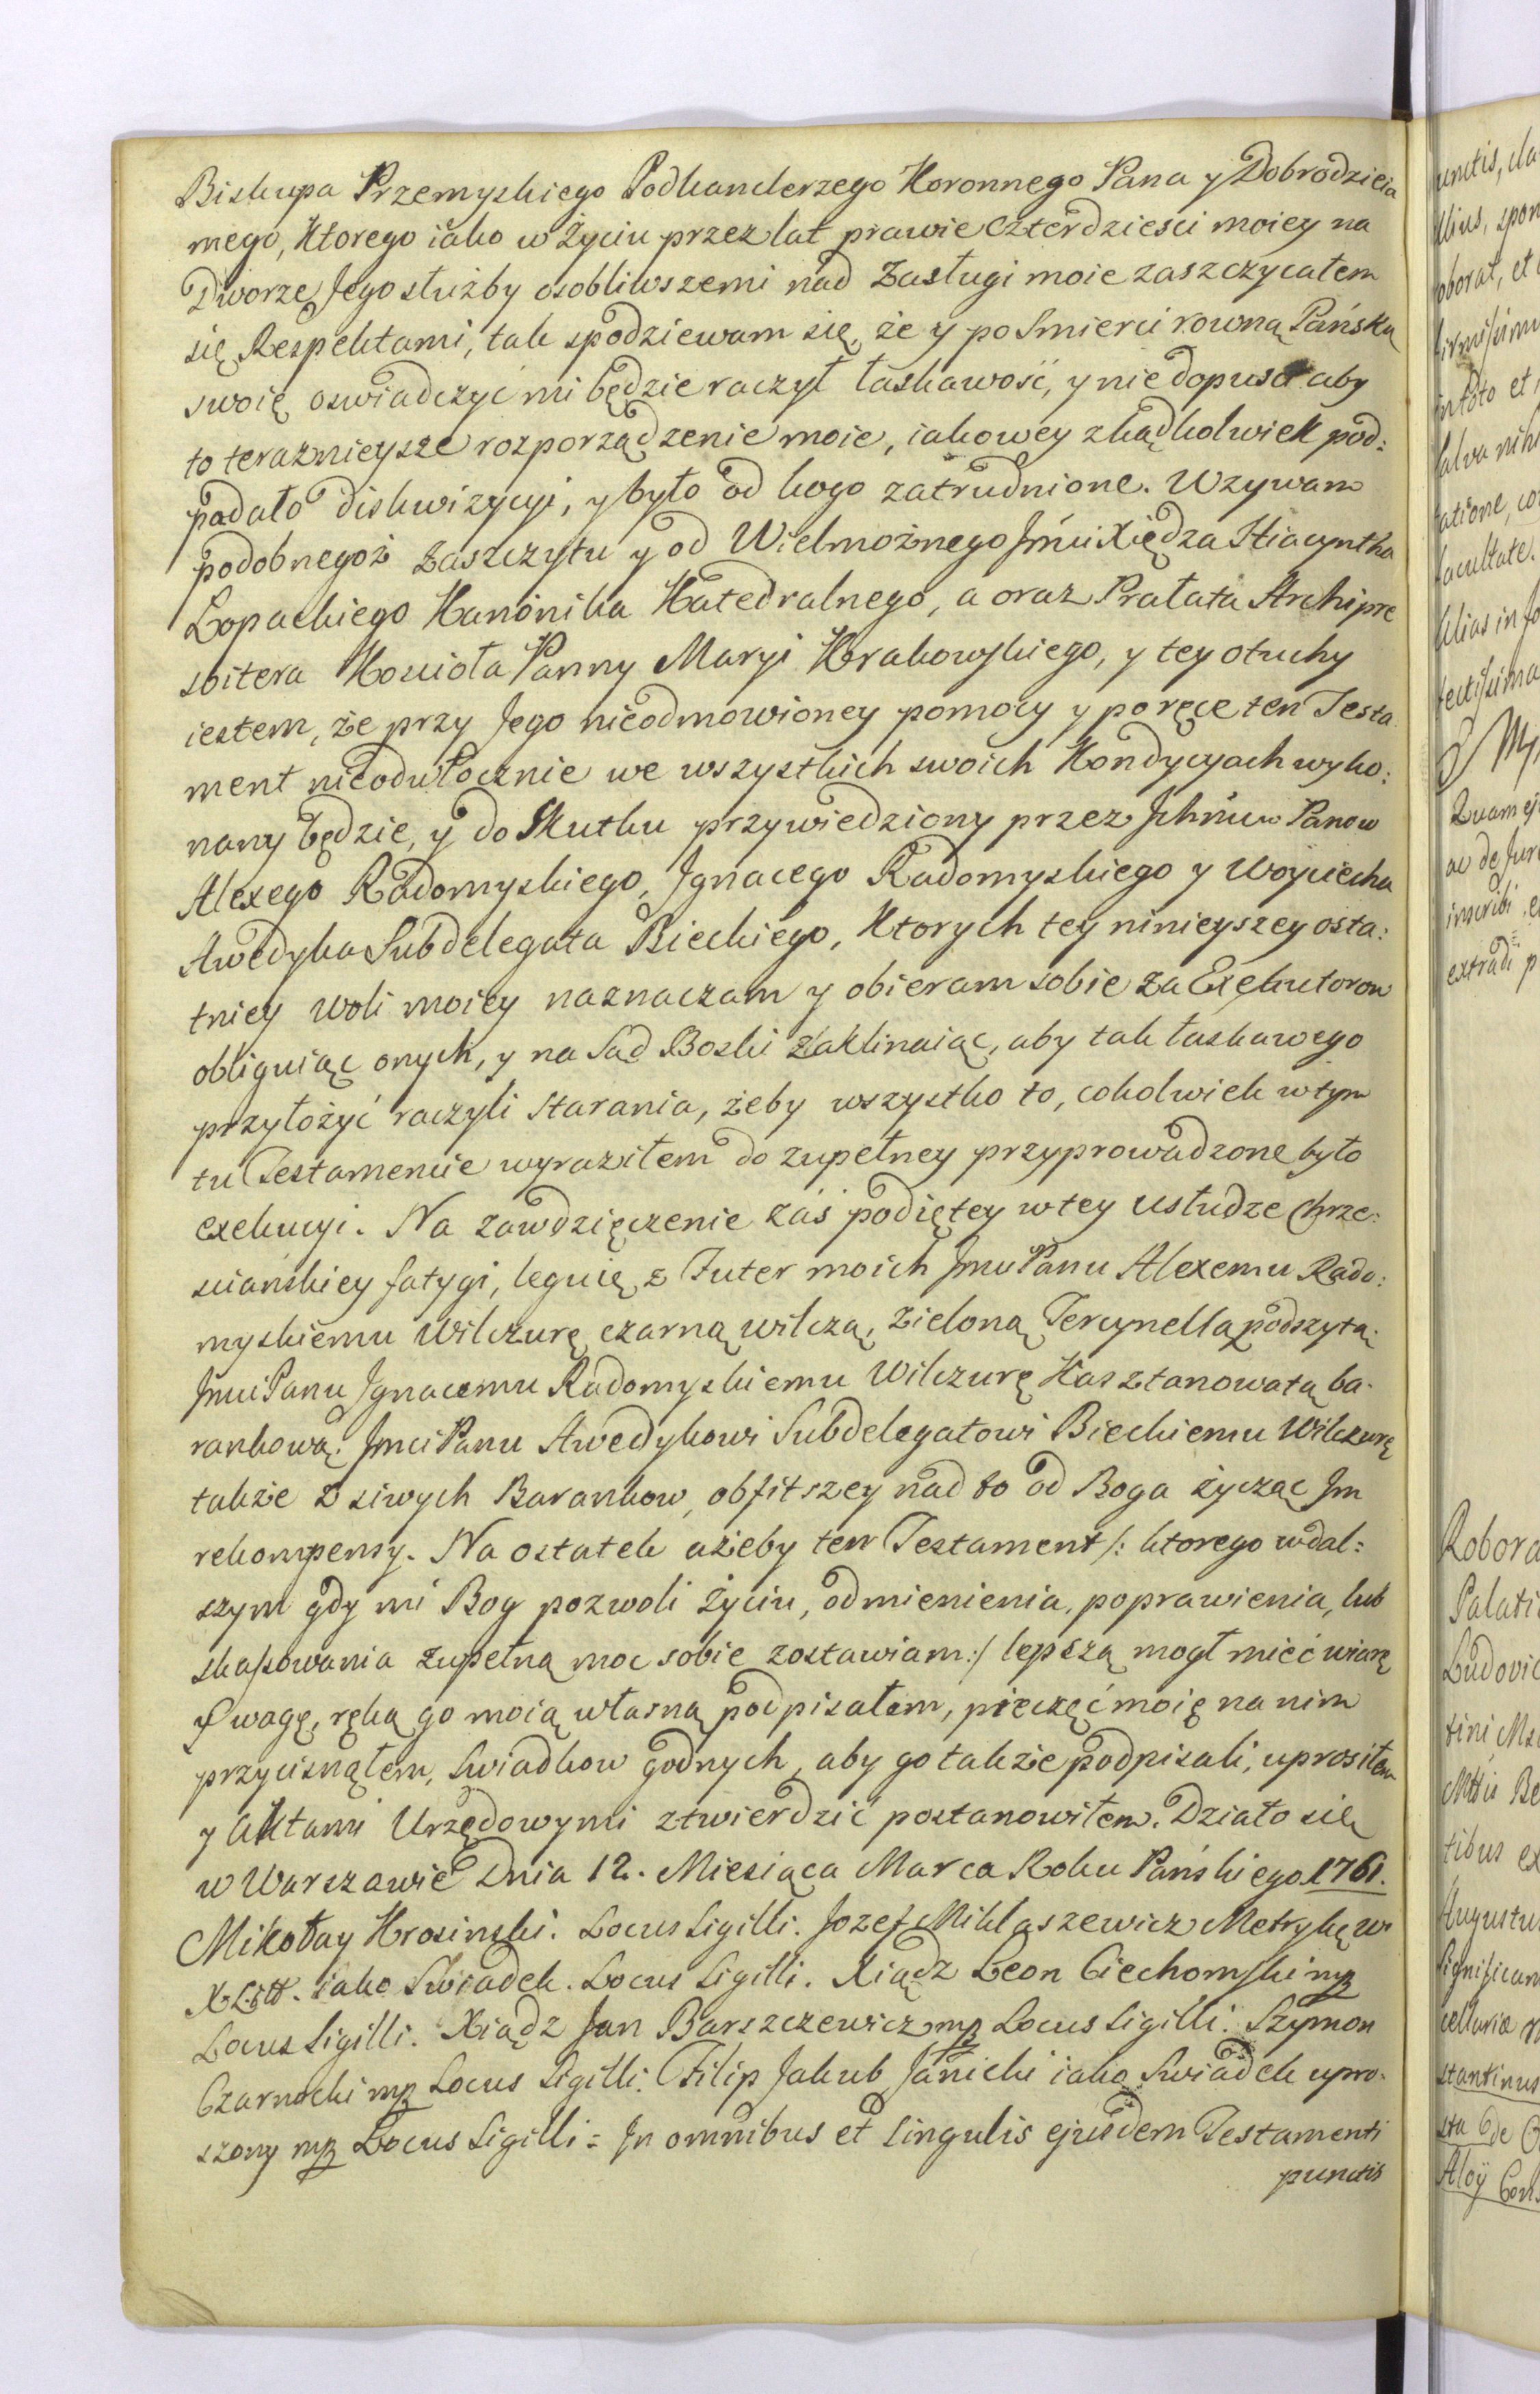 Biskupa Przemyskiego Podkanclerzego Koronnego Pana y Dobrodzieia
mego, Ktorego iako w Życiu przez lat prawie czterdziesci moiey na
Dworze Jego służby osobliwszemi nad Zasługi moie zaszczycałem
się Respektami, tak spodziewam się, że y po Smierci rowną Pańską
swoię oswiadczyć mi będzie raczył łaskawość, y nie dopuści aby
to teraznieysze rozporządzenie moie, iakowey zkądkolwiek pod:
padało diskwizycyi, y było od kogo zatrudnione. Wzywam
podobnegoż Zaszczytu y od Wielmożnego Jmći Xiędza Hiacyntha
Łopackiego Kanonika Katedralnego, a oraz Prałata Archipre
sbitera Kościoła Panny Maryi Krakowskiego, y tey otuchy
iestem, że przy Jego nieodmowioney pomocy y poręce ten Testa
ment nieodwłocznie we wszystkich swoich Kondycyach wyko:
nany będzie, y do Skutku przywiedziony przez Jchmciw Panow
Alexego Radomyskiego, Jgnacego Radomyskiego y Woyciecha
Awedyka Subdelegata Bieckiego, Ktorych tey ninieyszey osta:
tniey woli moiey naznaczam y obieram sobie za Exekutorow
obliguiąc onych, y na Sąd Boski zaklinaiąc, aby tak łaskawego
przyłożyć raczyli starania, żeby wszystko to, cokolwiek w tym
tu Testamencie wyraziłem do zupełney przyprowadzone było
exekucyi. Na zawdzięczenie zaś podiętey w tey usłudze Chrze:
sciańskiey fatygi, leguię z Futer moich Jmci Panu Alexemu Rado:
myskiemu Wilczurę czarną wilczą, zieloną Tercynellą podszytą;
Jmci Panu Jgnacemu Radomyskiemu Wilczurę Kasztanowatą ba-
rankową; Jmci Panu Awedykowi Subdelegatowi Bieckiemu Wilczurę
także z siwych Barankow, obfitszey nad to od Boga życząc Jm
rekompensy. Na ostatek ażeby ten Testament /: ktorego w dal=
szym gdy mi Bog pozwoli Życiu, odmienienia, poprawienia, lub
skassowania zupełną moc sobie zostawiam :/ lepszą mogł mieć wiarę
y wagę, ręką go moią własną podpisałem, pieczęć moię na nim
przycisnąłem, Swiadkow godnych, aby go także podpisali, uprosiłem
y Aktami Urzędowymi ztwierdzić postanowiłem. Działo się
w Warszawie Dnia 12. Miesiąca Marca Roku Pańskiego 1761.
Mikołay Krosinski. Locus Sigilli. Jozef Miklaszewicz Metryk: w:
X Litt. iako Swiadek. Locus Sigilli. Xiądz Leon Ciechomski mp
Locus Sigilli. Xiądz Jan Barszczewicz mp Locus Sigilli. Szymon
Czarnocki mp Locus Sigilli. Filip Jakub Janicki iako Swiadek upro-
szony mp Locus Sigilli = Jn omnibus et singulis ejusdem Testamenti
punctis